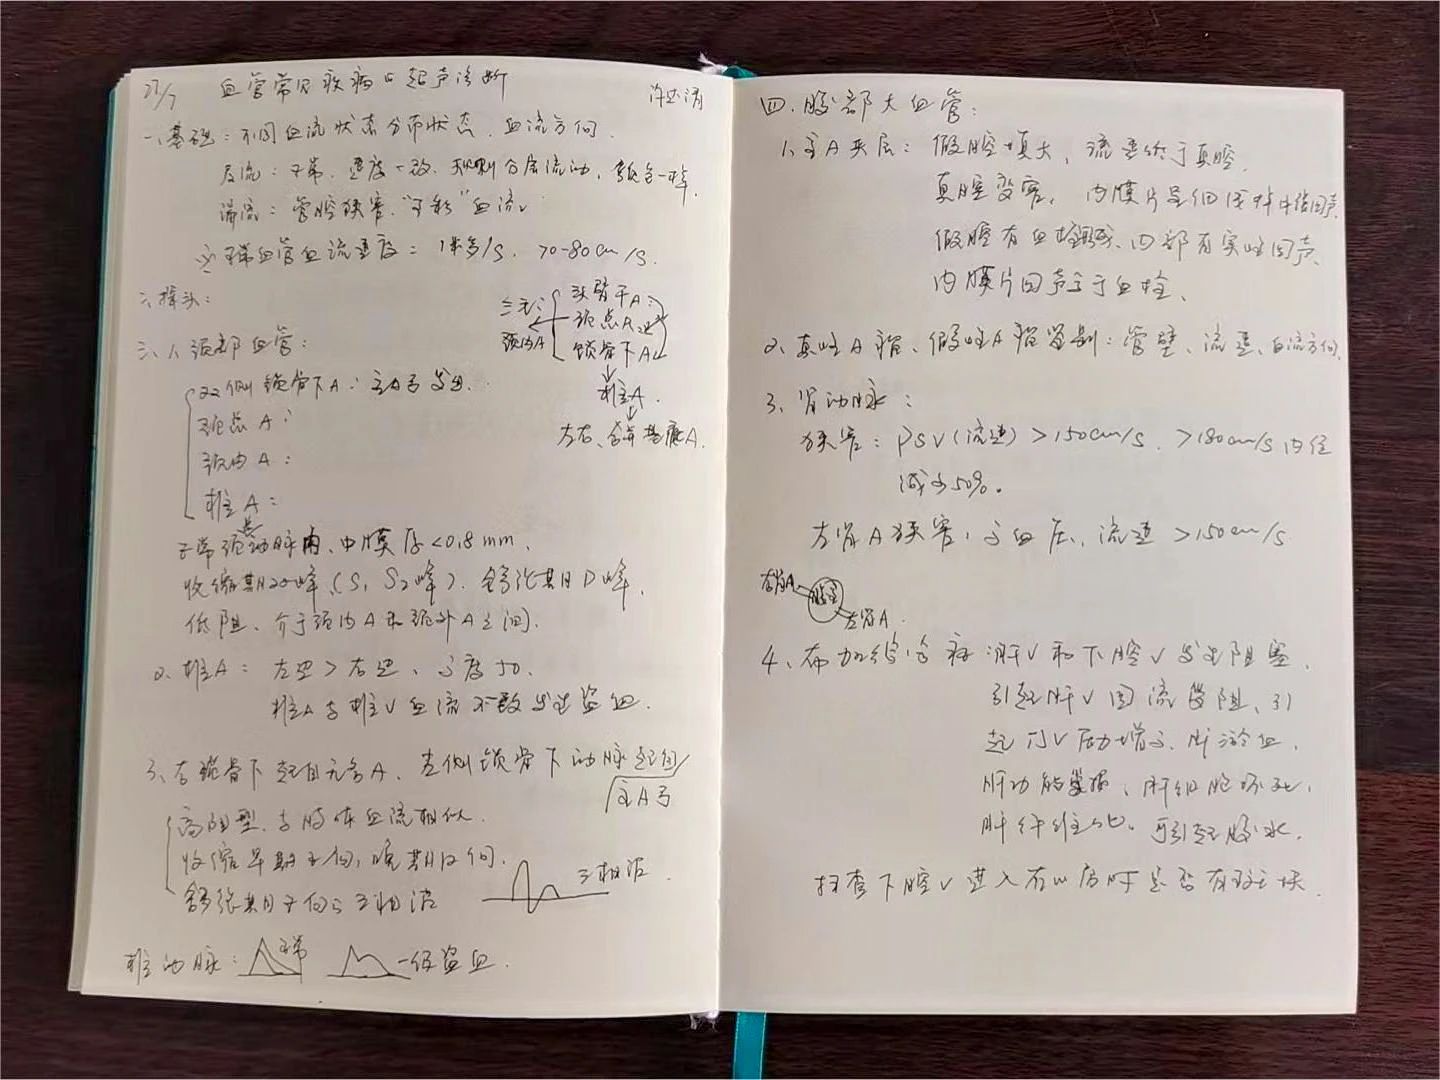 血管常见疾病的超声诊断
一、基础：不同血流状态分布状态、血流方向.
层流：正常、速度一致、规则分层流动，颜色一样.
湍流：管腔狭窄，"五彩"血流。
正常血管血流速度：1米多/s、70-80cm/s.
二、探头：
三、1、颈部血管：
双侧锁骨下A：主A弓发出.
颈总A：
颈内A：
椎A：
头臂干A：
颈总A
锁骨下A
颈内A
椎A.
左右、合并基底A.
正常颈总动脉内、中膜厚<0.8mm、
收缩期双峰（S₁ S₂峰）、舒张期D峰、
低阻、介于颈内A和颈外A之间.
2、椎A：左边>右边、
椎A与椎V血流不一致发生盗血.
3、右锁骨下起自无名A、左侧锁骨下动脉起自
主A弓
高阻型、与肢体血流相似.
收缩早期正向，晚期反向.
舒张期正向：三相波
三相波
椎动脉：正常 一级盗血.
四、腹部大血管：
1、主A夹层：假腔增大、流速低于真腔.
真腔变窄，内膜片呈细线样中强回声.
假腔有血栓形成、内部有实性回声、
内膜片回声高于血栓、
2、真性A瘤、假性A瘤鉴别：管壁、流速、血流方向.
3、肾动脉：
狭窄：PSV（流速）>150cm/s、>180cm/s内径
减少50%。
左肾A狭窄，高血压、流速>150cm/s
右肾A 腹主
左肾A.
4、布加综合征：肝V和下腔V发生阻塞、
引起肝V回流受阻、引
起门V压力增高、肝淤血、
肝功能紊乱、肝细胞坏死，
肝纤维化。可引起腹水.
扫查下腔V进入右心房时是否有斑块.